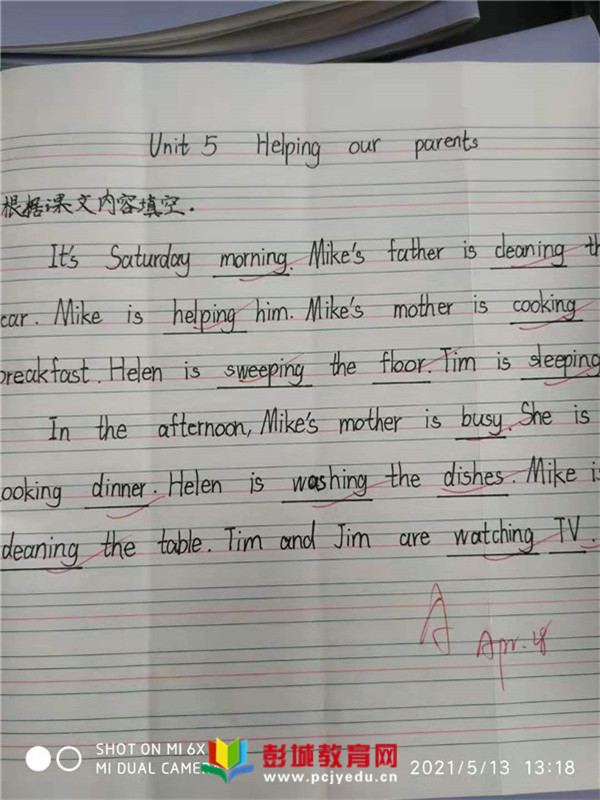 Unit 5 Helping our parents
根据课文内容填空.
It's Saturday morning. Mike's father is cleaning th
car. Mike is helping him. Mike's mother is cooking
breakfast. Helen is sweeping the floor. Tim is sleeping
In the afternoon, Mike's mother is busy. She is
ooking dinner. Helen is washing the dishes. Mike is
cleaning the table. Tim and Jim are watching TV.
A
Apr. 28
SHOT ON MI 6X
MI DUAL CAMERA
彭城教育网
www.pcjyedu.cn
2021/5/13 13:18